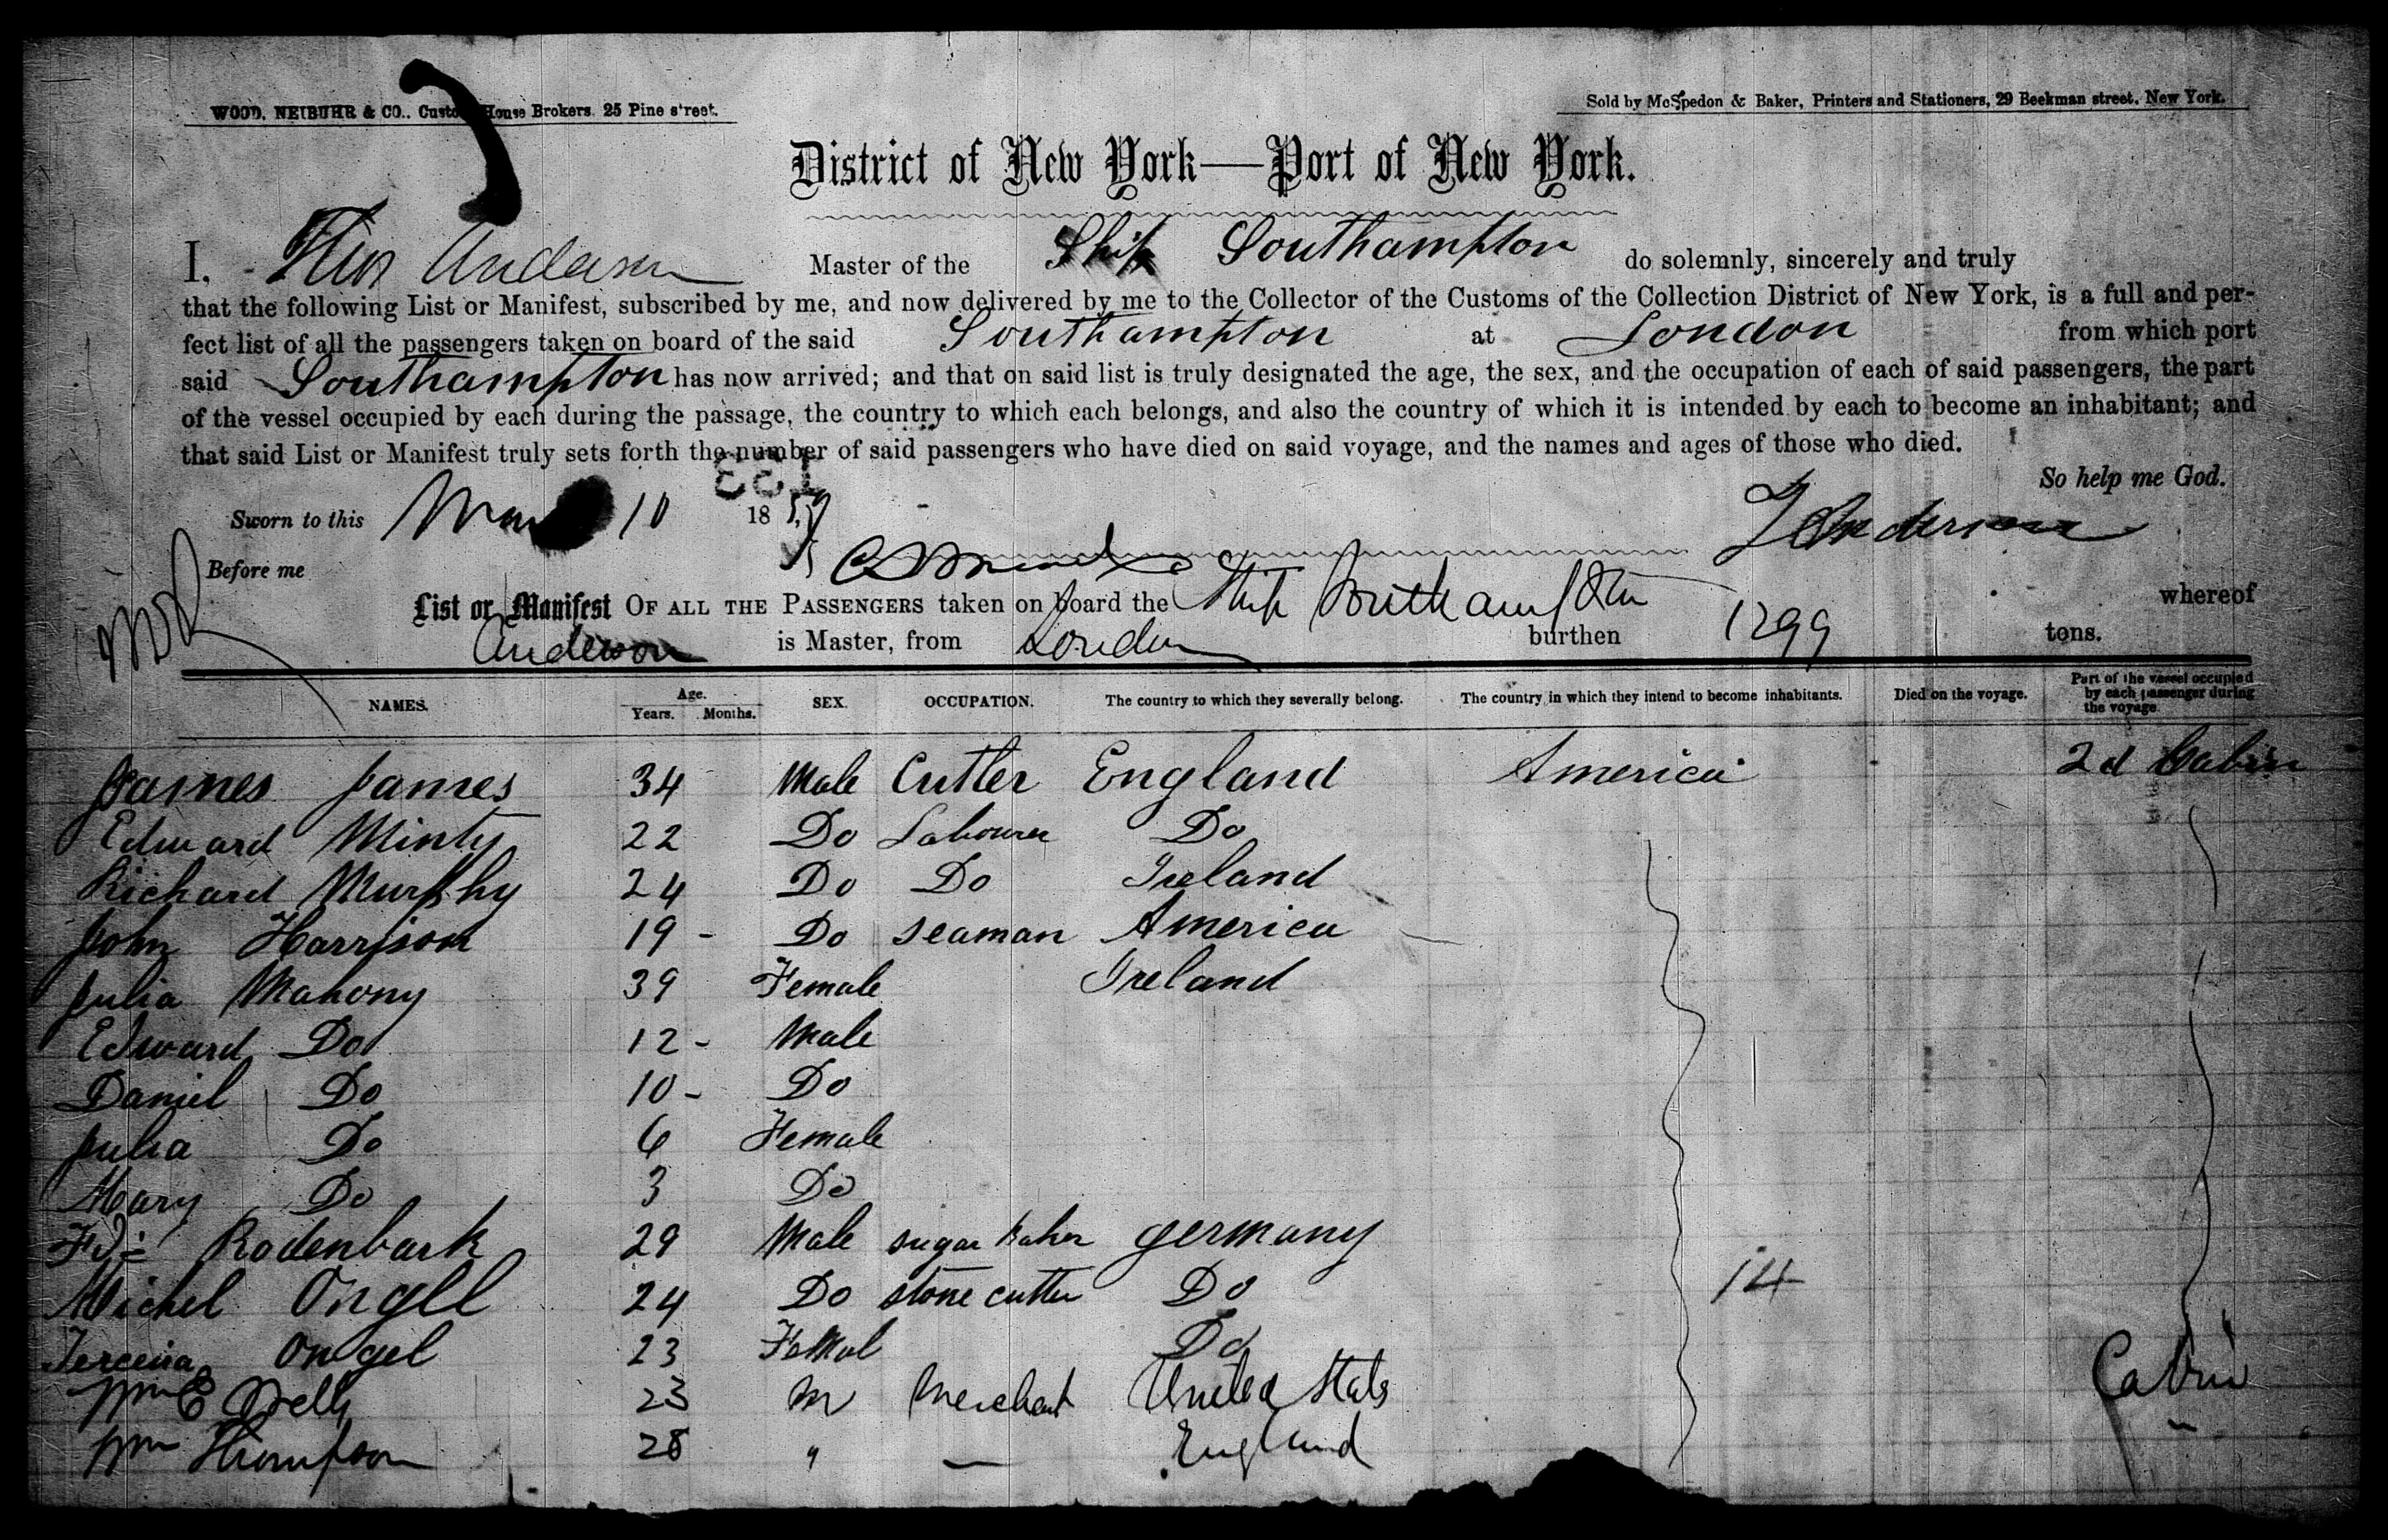 WOOD, NEIBUHR & CO., Custom House Brokers. 25 Pine street.
Sold by McSpedon & Baker, Printers and Stationers, 29 Beekman street, New York.
District of New York—Port of New York.
I, Anderson Master of the Ship Southampton do solemnly, sincerely and truly
that the following List or Manifest, subscribed by me, and now delivered by me to the Collector of the Customs of the Collection District of New York, is a full and per-
fect list of all the passengers taken on board of the said Southampton at London from which port
said Southampton has now arrived; and that on said list is truly designated the age, the sex, and the occupation of each of said passengers, the part
of the vessel occupied by each during the passage, the country to which each belongs, and also the country of which it is intended by each to become an inhabitant; and
that said List or Manifest truly sets forth the number of said passengers who have died on said voyage, and the names and ages of those who died.
So help me God.
133
Sworn to this 10 1859 Anderson
Before me
List or Manifest OF ALL THE PASSENGERS taken on board the Ship Southampton whereof
Anderson is Master, from London burthen 1299 tons.
NAMES. Age. Years. Months. SEX. OCCUPATION. The country to which they severally belong. The country in which they intend to become inhabitants. Died on the voyage. Part of the vessel occupied by each passenger during the voyage
James James 34 Male Cutler England America 2d Cabin
Edward Minty 22 Do Labourer Do
Richard Murphy 24 Do Do Ireland
John Harrison 19 - Do Seaman America
Julia Mahony 39 Female Ireland
Edward Do 12 - Male
Daniel Do 10 - Do
Julia Do 6 Female
Mary Do 3 Do
Rodenbark 29 Male sugar Baker Germany
Michel Ongell 24 Do stone cutter Do 14
Ongel 23 Femal Do
Wm E 23 M Merchant United States Cabin
Wm Thompson 28 " — England "